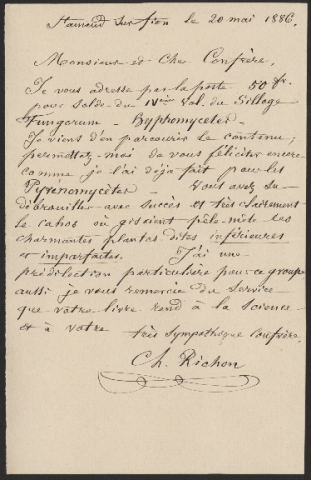 St amand sur fion le 20 mai 1886.
Monsieur et Cher Confrère,
Je vous adresse par la poste 50 fr.
pour solde du IVème vol. du Sylloge
Fungorum – Hyphomycetes –
Je viens d'en parcourir le contenu;
permettez-moi de vous féliciter encore
comme je l'ai déjà fait pour les
Pyrénomycètes – Vous avez su
débrouiller avec succès et très clairement
le cahos où gisaient pêle-mêle les
charmantes plantes dites inférieures
et imparfaites. J'ai une
prédilection particulière pour ce groupe
aussi je vous remercie du service
que votre livre rend à la science
et à votre très sympathique confrère,
Ch. Richon